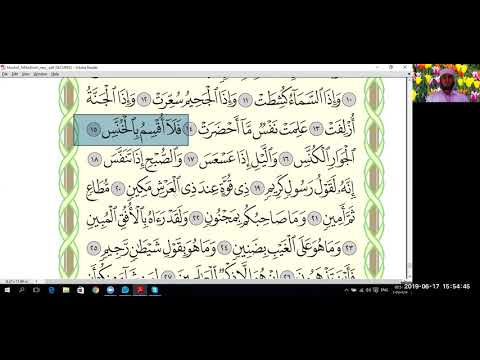 (SECURED) - Adobe Reader
١٠ وَإِذَا ٱلسَّمَآءُ كُشِطَتْ ١١ وَإِذَا ٱلْجَحِيمُ سُعِّرَتْ ١٢ وَإِذَا ٱلْجَنَّةُ
أُزْلِفَتْ ١٣ عَلِمَتْ نَفْسٌ مَّآ أَحْضَرَتْ ١٤ فَلَآ أُقْسِمُ بِٱلْخُنَّسِ ١٥
ٱلْجَوَارِ ٱلْكُنَّسِ ١٦ وَٱلَّيْلِ إِذَا عَسْعَسَ ١٧ وَٱلصُّبْحِ إِذَا تَنَفَّسَ ١٨
إِنَّهُۥ لَقَوْلُ رَسُولٍ كَرِيمٍ ١٩ ذِى قُوَّةٍ عِندَ ذِى ٱلْعَرْشِ مَكِينٍ ٢٠ مُّطَاعٍ
ثَمَّ أَمِينٍ ٢١ وَمَا صَاحِبُكُم بِمَجْنُونٍ ٢٢ وَلَقَدْ رَءَاهُ بِٱلْأُفُقِ ٱلْمُبِينِ
٢٣ وَمَا هُوَ عَلَى ٱلْغَيْبِ بِضَنِينٍ ٢٤ وَمَا هُوَ بِقَوْلِ شَيْطَٰنٍ رَّجِيمٍ ٢٥
2019-06-17 15:54:45